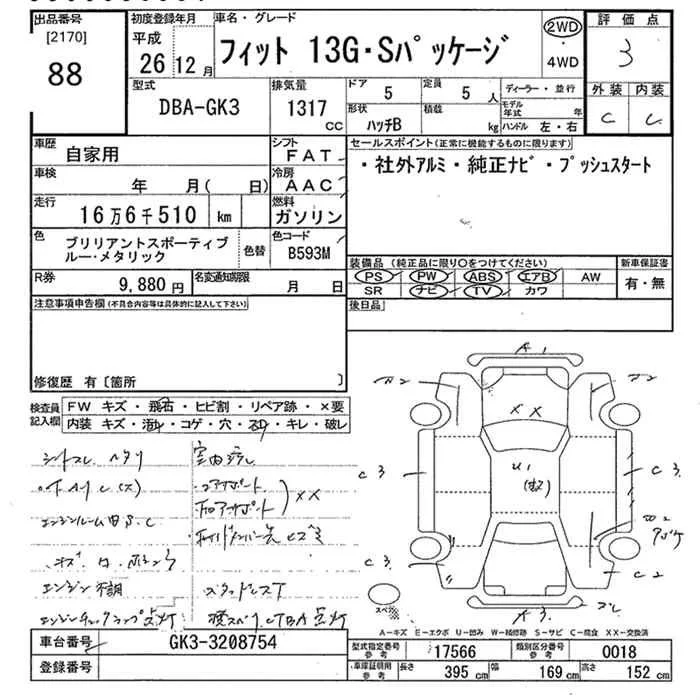 出品番号
[2170]
88
初度登録年月
平成
26 12 月
車名・グレード
フィット 13G・Sパッケージ
2WD
・
4WD
評価点
3
外装 内装
C C
型式
DBA-GK3
排気量
1317
CC
ドア
5
定員
5 人
形状
ハッチB
積載
kg
ディーラー・並行
モデル年式 年
ハンドル 左・右
車歴
自家用
シフト
FAT
車検
年 月( 日)
冷房
AAC
走行
16万6千510 km
燃料
ガソリン
色
ブリリアントスポーティブ
ルー・メタリック
色替
色コード
B593M
R券
9,880 円
名変通知期限
月 日
セールスポイント(正常に機能するものに限ります)
・社外アルミ・純正ナビ・プッシュスタート
装備品(純正品に限り○をつけてください)
PS PW ABS エアB AW
SR ナビ TV カワ
新車保証書
有・無
後日品
注意事項申告欄(不具合内容等は具体的に記入して下さい)
修復歴 有〔箇所 〕
検査員
記入欄
FW キズ・飛石・ヒビ割・リペア跡・×要
内装 キズ・汚れ・コゲ・穴・スレ・キレ・破レ
エンジン不調
エンジンチェックランプ点灯
スタッドレスT
A1
XX
U1
C3
C3
C3
C3
C2
A3
スペア
A-キズ E-エクボ U-凹み W-補修跡 S-サビ C-腐食 XX-交換済
車台番号
GK3-3208754
登録番号
型式指定番号
参考
17566
類別区分番号
参考
0018
車庫証明用
参考
長さ
395 cm
幅
169 cm
高さ
152 cm